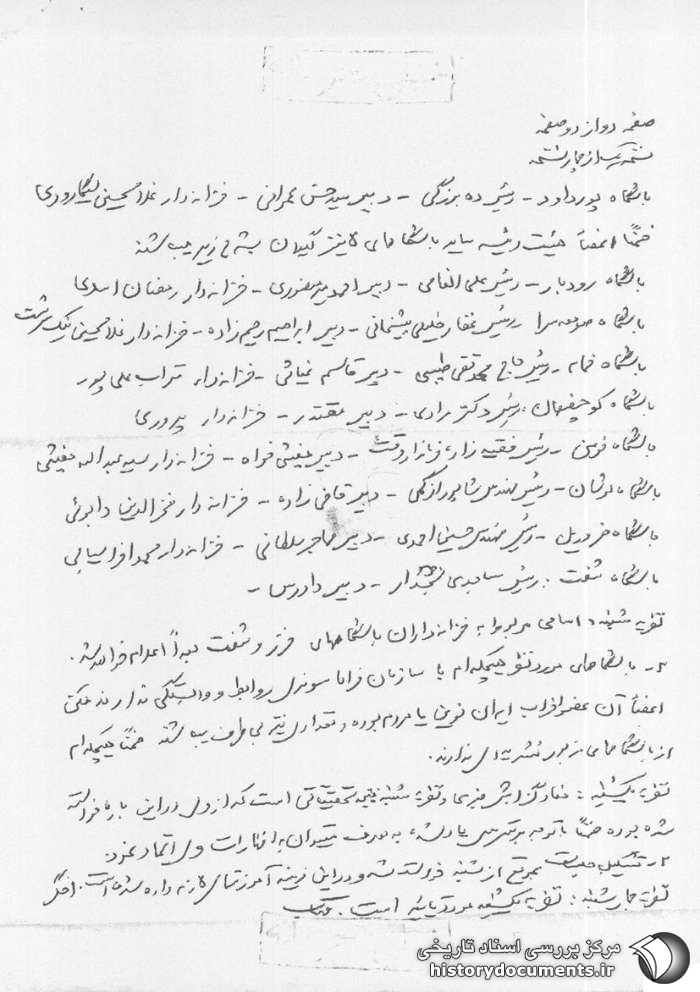 صفحه دو از دو صفحه
نسخه یک از چهار نسخه
باشگاه پورداود - رئیس ده بزرگی - دبیر سید حسن عمرانی - خزانه‌دار غلامحسین
ضمناً اعضاً هیئت رئیسه سایر باشگاههای لاینز گیلان بشرح زیر میباشند
باشگاه رودبار - رئیس علی انعامی - دبیر احمد میر غفوری - خزانه‌دار رمضان اسدی
باشگاه صومعه‌سرا رئیس غفار خلیلی - دبیر ابراهیم رحیم‌زاده - خزانه‌دار غلامحسین نیک سرشت
باشگاه خمام - رئیس حاج محمدتقی طبیبی - دبیر قاسم غیاثی - خزانه‌دار تراب علی پور
باشگاه کوچصفهان : رئیس دکتر مرادی - دبیر مقتدر - خزانه‌دار پیروری
باشگاه فومن - رئیس فقیه زاده فرماندار وقت - دبیر خواه - خزانه‌دار سید عبداله
باشگاه لوشان - رئیس مهندس شاپور - دبیر قاضی زاده - خزانه‌دار فخرالدین
باشگاه هرزویل - رئیس مهندس حسین احمدی - دبیر سلطانی - خزانه‌دار محمد افراسیابی
باشگاه شفت : رئیس ساجدی بخشدار - دبیر دادرس -
نظریه شنبه : اسامی مربوط به خزانه‌داران باشگاههای و شفت بعداً اعلام خواهد شد .
۳- باشگاههای مورد نظر هیچکدام با سازمان فراماسونری روابط و وابستگی ندارند ضمناً
اعضاً آن عضو احزاب ایران نوین یا مردم بوده و تعدادی نیز بی‌طرف میباشند ضمناً هیچکدام
از باشگاههای مزبور نشریه‌ای ندارند.
نظریه یکشنبه : مفاد گزارش خبر و نظریه شنبه نتیجه تحقیقاتی است که از وی در این باره خواسته
شده بوده ضمناً با توجه به دسترسی یاد شده به هدف میتوان به اظهارات وی اعتماد نمود.
۲- تشکیل جلسات بموقع از شنبه خواسته شده و در این زمینه آموزشهای لازم داده شده است.
نظریه چهارشنبه : نظریه یکشنبه مورد تایید است .
مرکز بررسی اسناد تاریخی
historydocuments.ir